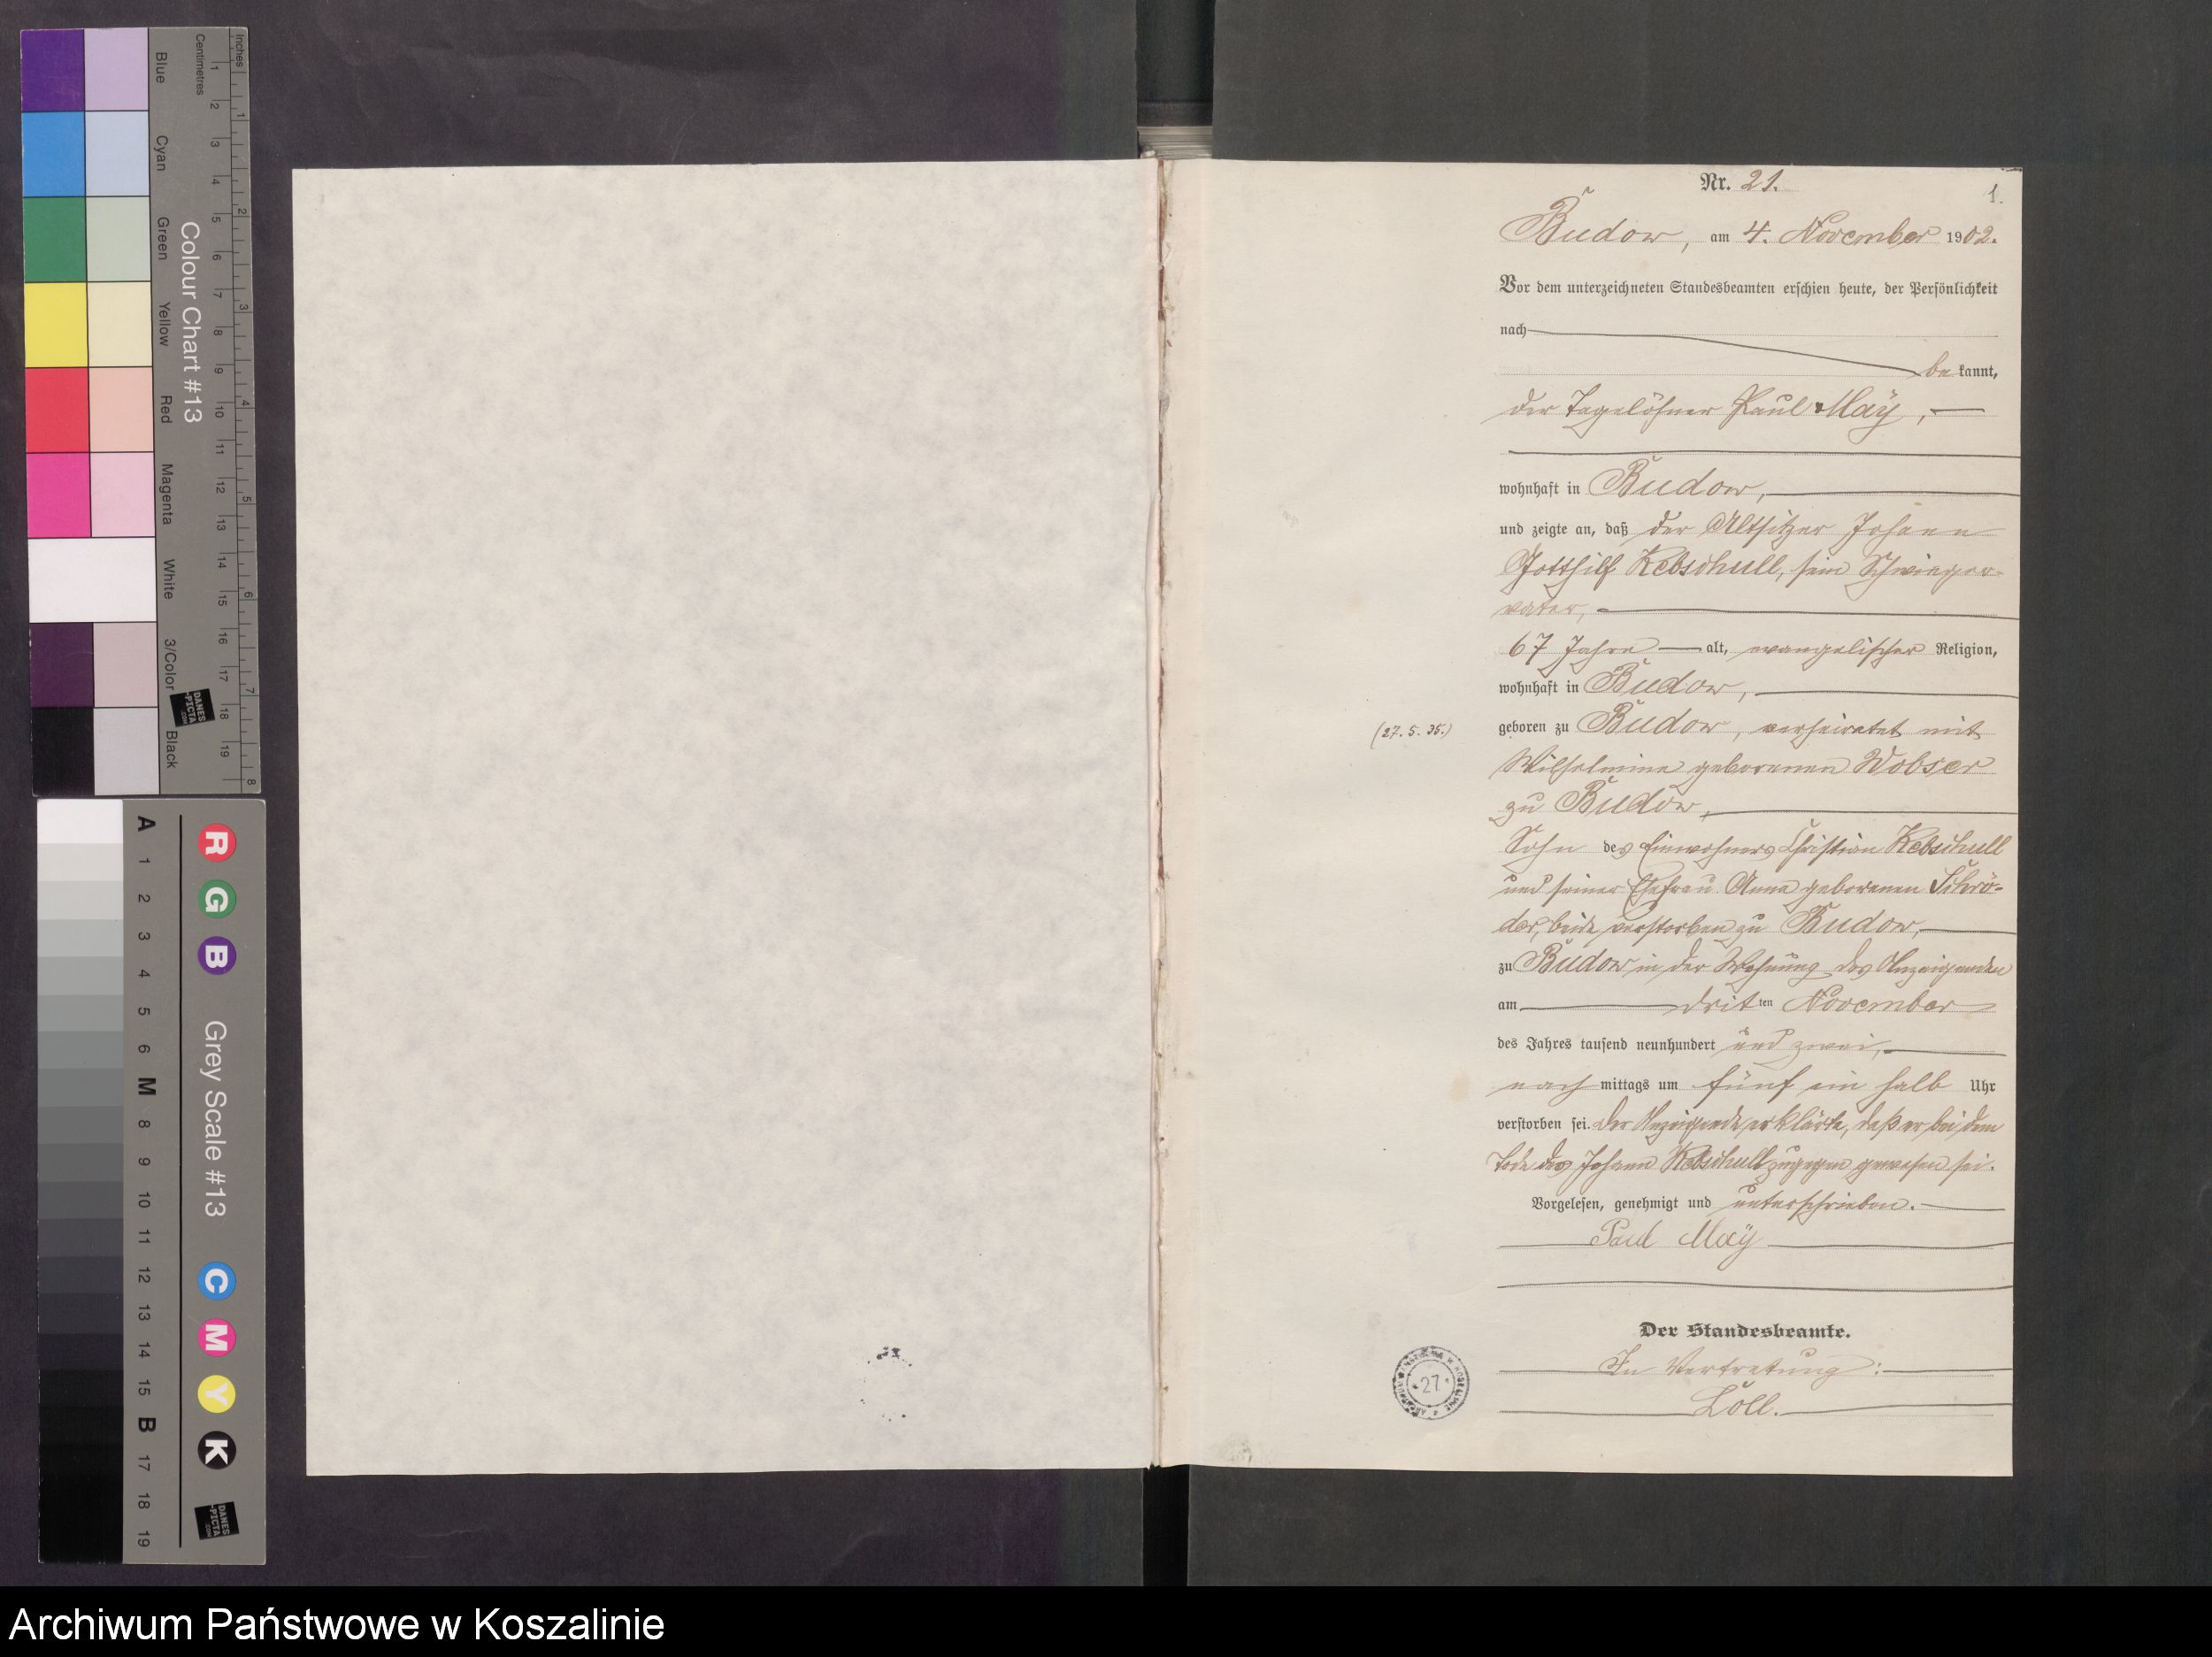 Inches
Centimetres
Colour Chart #13
Blue
Cyan
Green
Yellow
Red
Magenta
White
3/Color
Black
1 2 3 4 5 6 7 8 9 10 11 12 13 14 15 16 17 18 19
1 2 3 4 5 6 7 8
DANES-PICTA.COM
Grey Scale #13
R G B
C M Y K
A 1 2 3 4 5 6 M 8 9 10 11 12 13 14 15 B 17 18 19
DANES-PICTA.COM
Nr. 21.
1.
Budow, am 4. November 1902.
Vor dem unterzeichneten Standesbeamten erschien heute, der Persönlichkeit
nach
bekannt,
der Tagelöhner Paul Maÿ,
wohnhaft in Budow,
und zeigte an, daß der Altsitzer Johann
Gotthilf Kebschull, sein Schwieger-
vater,
67 Jahre alt, evangelischer Religion,
wohnhaft in Budow,
(27. 5. 35.)
geboren zu Budow, verheiratet mit
Wilhelmine geborenen Wobser
zu Budow,
Sohn des Einwohners Christian Kebschull
und seiner Ehefrau Anna geborenen Schrö-
der, beide verstorben zu Budow,
zu Budow in der Wohnung des Anzeigenden
am dritten November
des Jahres tausend neunhundert und zwei,
nachmittags um fünf ein halb Uhr
verstorben sei. Der Anzeigende erklärte, daß er bei dem
Tode des Johann Kebschull zugegen gewesen sei.
Vorgelesen, genehmigt und unterschrieben.
Paul Maÿ
Der Standesbeamte.
In Vertretung:
Löll.
27
Archiwum Państwowe w Koszalinie